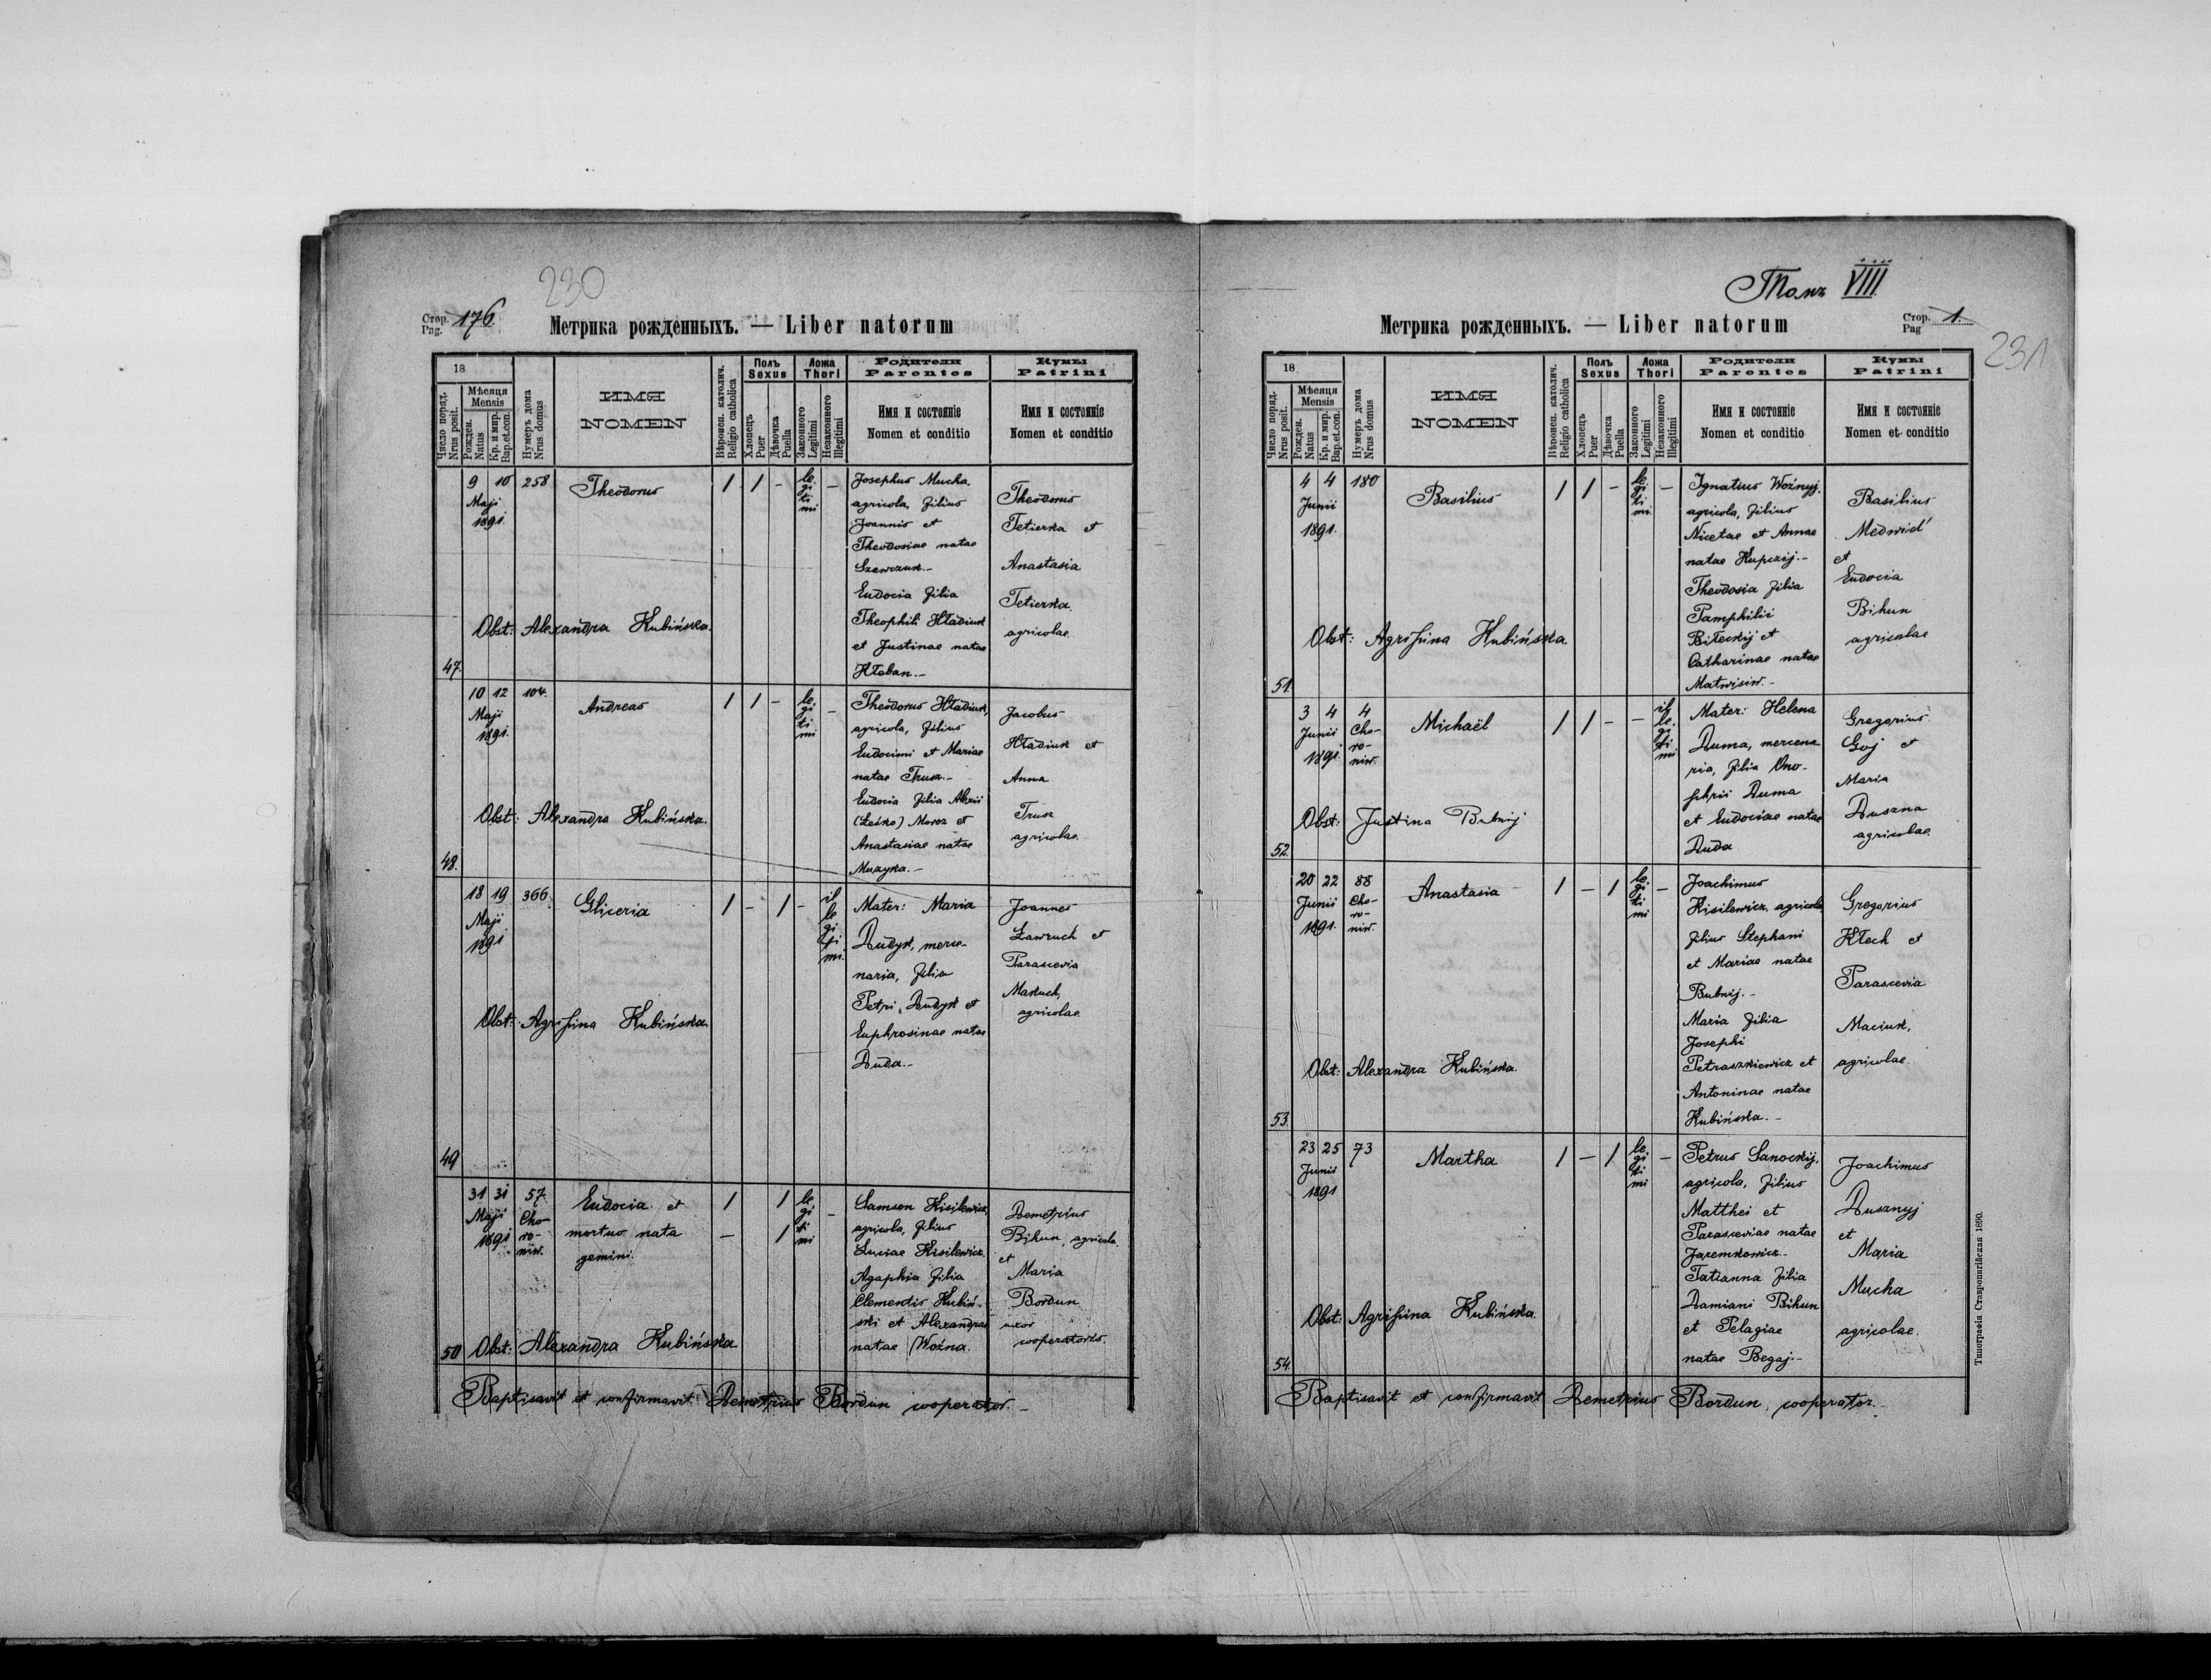 230
Стор. Pag. 176.
Метрика рожденныхъ. — Liber natorum
18
Число поряд. Nrus posit.
Мѣсяця Mensis
Рожден. Natus
Кр. и мир. Bap.et.con.
Нумеръ дома Nrus domus
ИМЯ
NOMEN
Вѣроисп. католич. Religio catholica
Полъ Sexus
Хлопецъ Puer
Дѣвочка Puella
Ложа Thori
Законного Legitimi
Незаконного Illegitimi
Родители
Parentes
Имя и состояніе
Nomen et conditio
Кумы
Patrini
Имя и состояніе
Nomen et conditio
47.
9 10 258
Maji
1891.
Theodorus
1 1 - le gi ti mi -
Josephus Mucha,
agricola, filius
Joannis et
Theodosiae natae
Szewczuk.-
Eudocia filia
Theophili Hładiuk
et Justinae natae
Hłoban.-
Theodorus
Teterka et
Anastasia
Teterka.
agricolae.
Obst: Alexandra Kubińska.
48.
10 12 104.
Maji
1891.
Andreas
1 1 - le gi ti mi -
Theodorus Hładiuk,
agricola, filius
Eudocimi et Mariae
natae Trusz.-
Eudocia filia Alexii
(Leśko) Moroz et
Anastasiae natae
Muzyka.-
Jacobus
Hładiuk et
Anna
Trusz
agricolae.
Obst: Alexandra Kubińska.
49
18 19 366.
Maji
1891
Gliceria
1 - 1 - il le gi ti mi.
Mater: Maria
Dudyk, merce-
naria, filia
Petri Dudyk et
Euphrosinae natae
Duda.-
Joannes
Ławruch et
Parascevia
Makuch,
agricolae.
Obst: Agripina Kubińska.
50
31 31 57.
Maji Cho-
1891 ro-
niw.
Eudocia et
mortuo nata
gemini.
1 1 le gi ti mi -
— 1
Samson Kisilewicz,
agricola, filius
Luciae Kisilewicz.
Agaphia filia
Clementis Kubiń-
ski et Alexandrae
natae Woźna.
Demetrius
Bihun, agricola.
et
Maria
Bordun
uxor
cooperatoris.
Obst: Alexandra Kubińska
Baptisavit et confirmavit Demetrius Bordun cooperator.-
Томъ VIII
Метрика рожденныхъ. — Liber natorum
Стор. Pag 1.
231
18
Число поряд. Nrus posit.
Мѣсяця Mensis
Рожден. Natus
Кр. и мир. Bap.et.con.
Нумеръ дома Nrus domus
ИМЯ
NOMEN
Вѣроисп. католич. Religio catholica
Полъ Sexus
Хлопецъ Puer
Дѣвочка Puella
Ложа Thori
Законного Legitimi
Незаконного Illegitimi
Родители
Parentes
Имя и состояніе
Nomen et conditio
Кумы
Patrini
Имя и состояніе
Nomen et conditio
51.
4 4 180
Junii
1891.
Basilius
1 1 - le gi ti mi. -
Ignatius Woźnyj.
agricola, filius
Nicetae et Annae
natae Kupczij.-
Theodosia filia
Pamphilii
Biłeckij et
Catharinae natae
Matwisiw.-
Basilius
Medwid'
et
Eudocia
Bihun
agricolae
Obst: Agripina Kubińska.
52.
3 4 4
Junii Cho-
1891. ro-
niw.
Michaël
1 1 - - il le gi ti mi
Mater: Helena
Duma, mercena
ria, filia Ono-
phrii Duma
et Eudociae natae
Duda
Gregorius
Goj et
Maria
Duszna
agricolae.
Obst: Justina Bubnij
53.
20 22 88
Junii Cho-
1891. ro-
niw.
Anastasia
1 - 1 le gi ti mi -
Joachimus
Kisilewicz, agricola,
filius Stephani
et Mariae natae
Bubnij.-
Maria filia
Josephi
Petraszkiewicz et
Antoninae natae
Kubińska.-
Gregorius
Kłech et
Parascevia
Maciuk,
agricolae.
Obst: Alexandra Kubińska.
54.
23 25 73
Junii
1891
Martha
1 - 1 le gi ti mi -
Petrus Sanockij,
agricola, filius
Matthei et
Parasceviae natae
Jaremkowicz.-
Tatianna filia
Damiani Bihun
et Pelagiae
natae Begaj.-
Joachimus
Dusznyj
et
Maria
Mucha
agricolae.
Obst: Agripina Kubińska.
Baptisavit et confirmavit Demetrius Bordun, cooperator.-
Типографія Ставропигійская 1890.